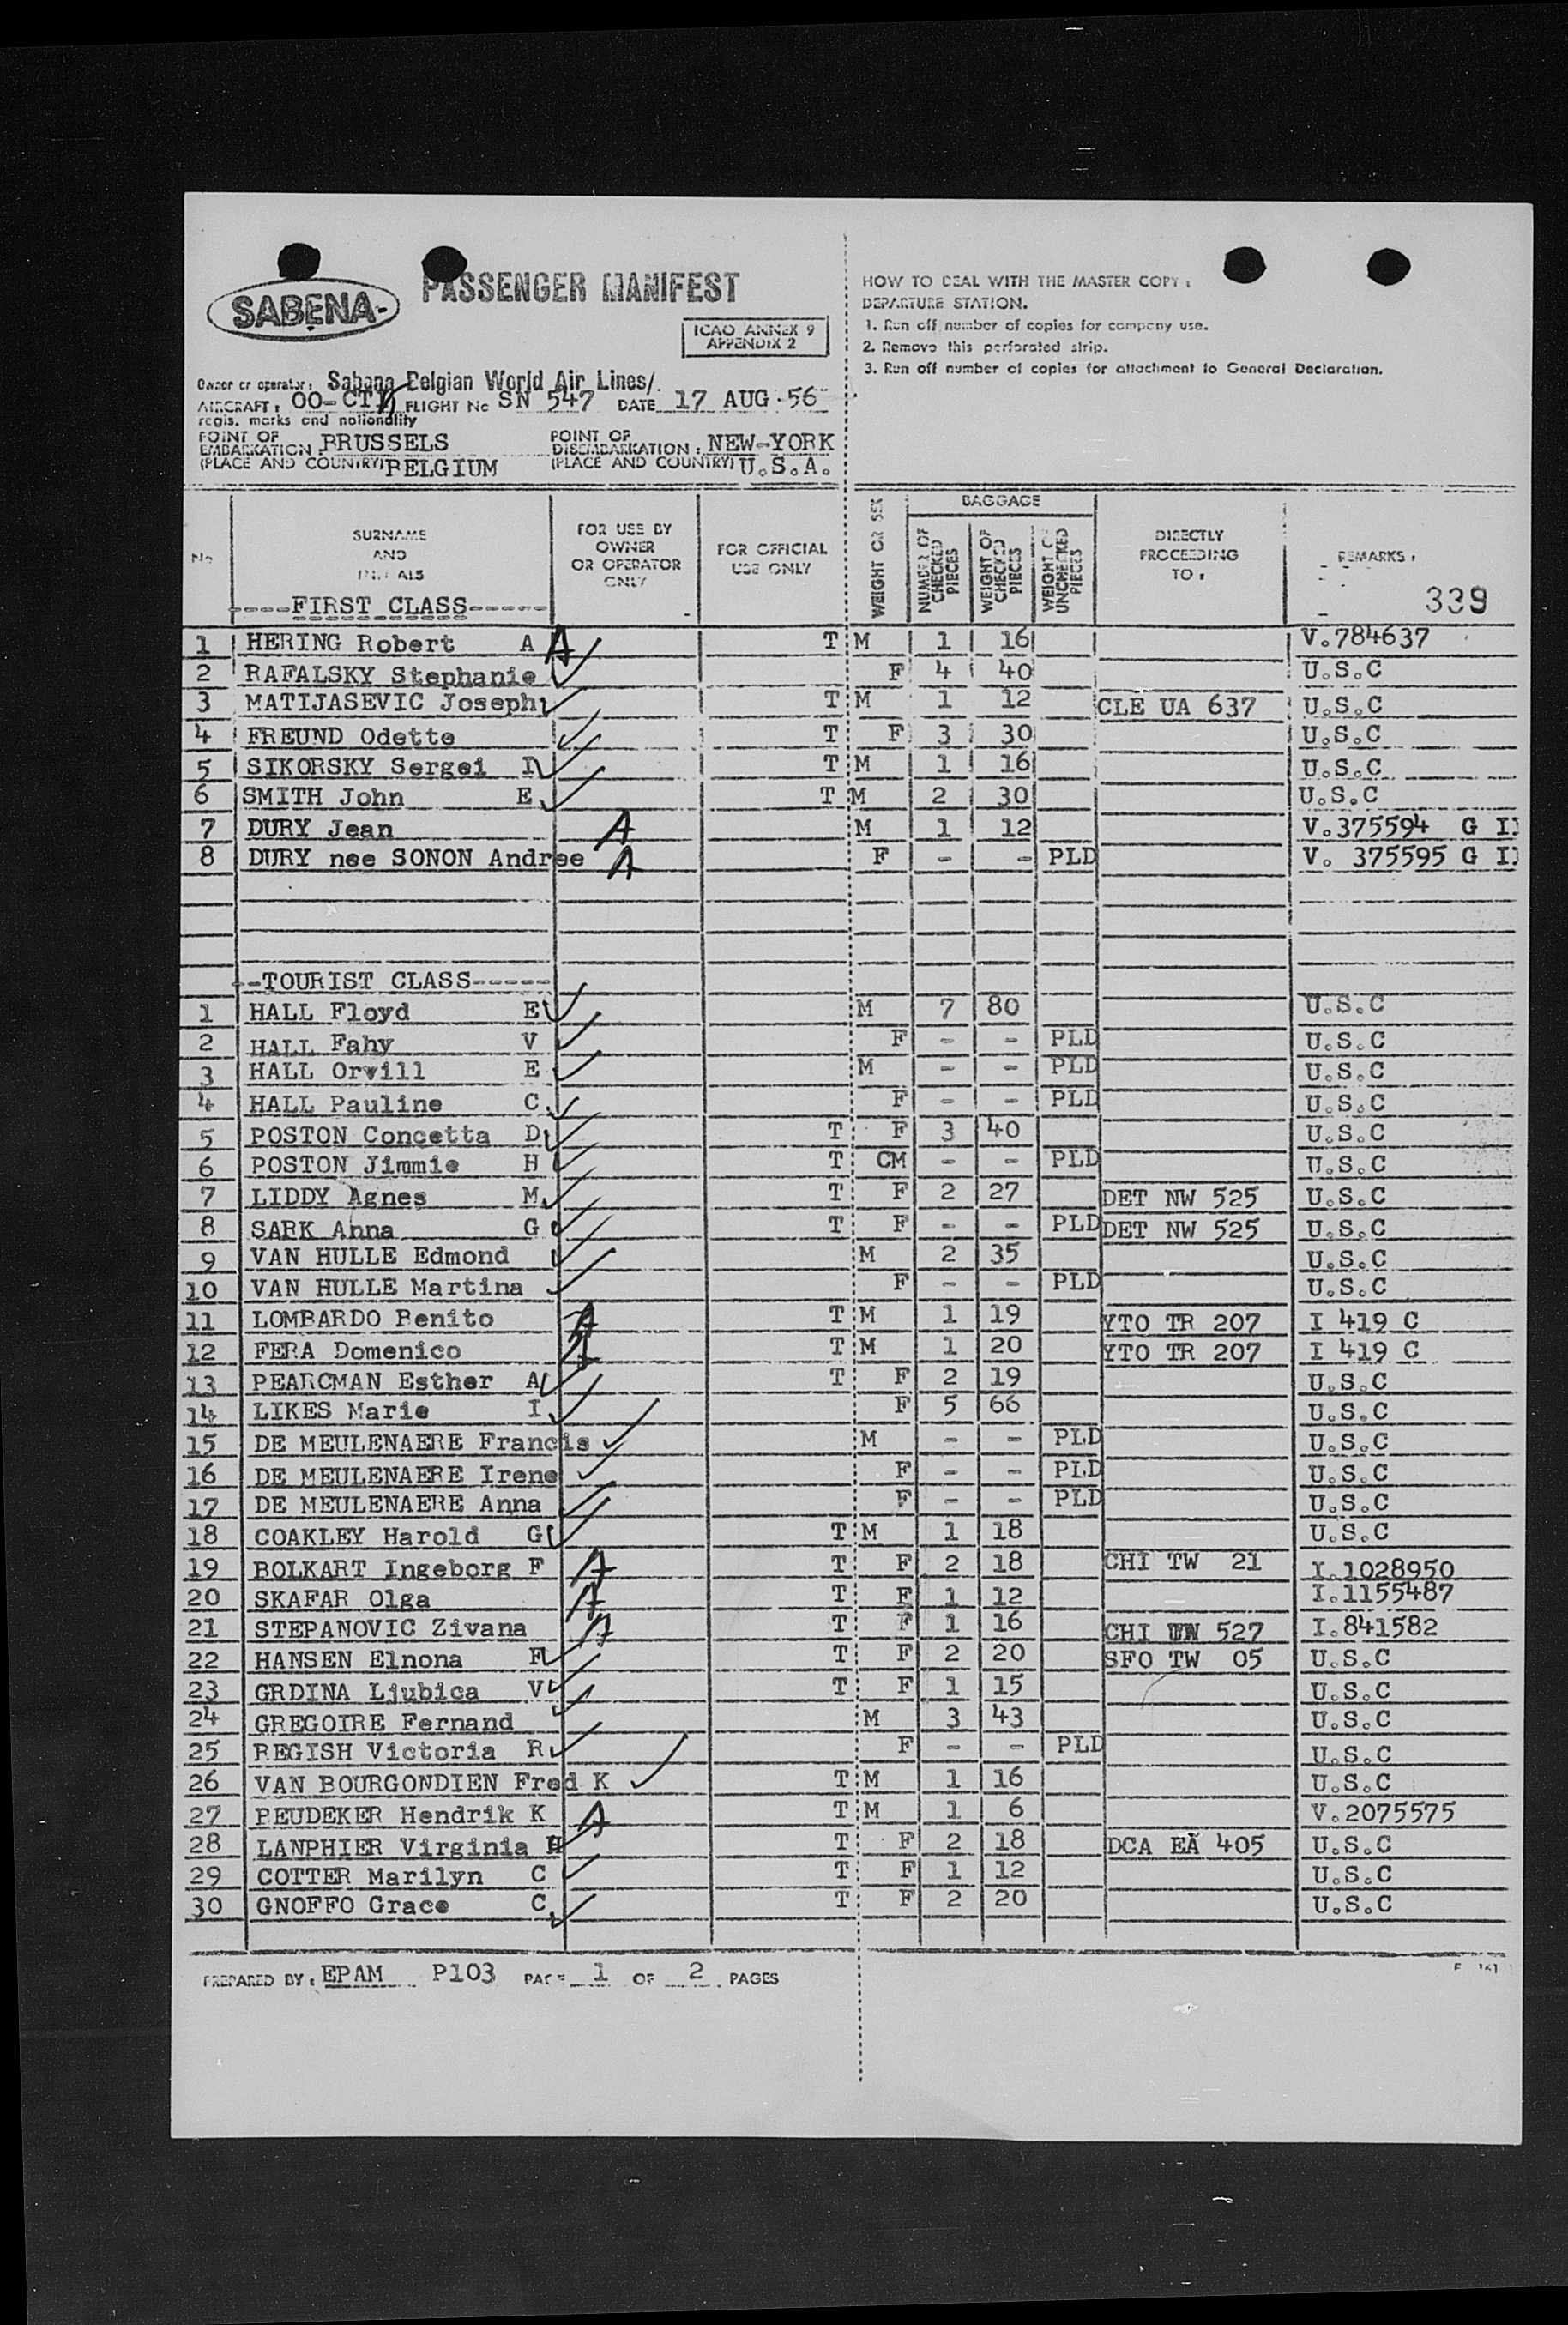 SABENA
PASSENGER MANIFEST
ICAO ANNEX 9
APPENDIX 2
Owner or operator: Sabena Belgian World Air Lines/.
AIRCRAFT: OO-CT FLIGHT No SN 547 DATE 17 AUG. 56
regis. marks and nationality
POINT OF EMBARKATION: BRUSSELS
(PLACE AND COUNTRY) BELGIUM
POINT OF DISEMBARKATION: NEW-YORK
(PLACE AND COUNTRY) U.S.A.
HOW TO DEAL WITH THE MASTER COPY:
DEPARTURE STATION.
1. Run off number of copies for company use.
2. Remove this perforated strip.
3. Run off number of copies for attachment to General Declaration.
No
SURNAME AND INITIALS
FOR USE BY OWNER OR OPERATOR ONLY
FOR OFFICIAL USE ONLY
WEIGHT OR SEX
BAGGAGE
NUMBER OF CHECKED PIECES
WEIGHT OF CHECKED PIECES
WEIGHT OF UNCHECKED PIECES
DIRECTLY PROCEEDING TO:
REMARKS:
339
----FIRST CLASS-----
1 HERING Robert A A T M 1 16 V.784637
2 RAFALSKY Stephanie F 4 40 U.S.C
3 MATIJASEVIC Joseph T M 1 12 CLE UA 637 U.S.C
4 FREUND Odette T F 3 30 U.S.C
5 SIKORSKY Sergei I T M 1 16 U.S.C
6 SMITH John E T M 2 30 U.S.C
7 DURY Jean A M 1 12 V.375594 G
8 DURY nee SONON Andree A F - - PLD V. 375595 G
--TOURIST CLASS-----
1 HALL Floyd E M 7 80 U.S.C
2 HALL Fahy V F - - PLD U.S.C
3 HALL Orvill E M - - PLD U.S.C
4 HALL Pauline C F - - PLD U.S.C
5 POSTON Concetta D T F 3 40 U.S.C
6 POSTON Jimmie H T CM - - PLD U.S.C
7 LIDDY Agnes M T F 2 27 DET NW 525 U.S.C
8 SARK Anna G T F - - PLD DET NW 525 U.S.C
9 VAN HULLE Edmond M 2 35 U.S.C
10 VAN HULLE Martina F - - PLD U.S.C
11 LOMBARDO Benito A T M 1 19 YTO TR 207 I 419 C
12 FERA Domenico A T M 1 20 YTO TR 207 I 419 C
13 PEARCMAN Esther A T F 2 19 U.S.C
14 LIKES Marie I F 5 66 U.S.C
15 DE MEULENAERE Francis M - - PLD U.S.C
16 DE MEULENAERE Irene F - - PLD U.S.C
17 DE MEULENAERE Anna F - - PLD U.S.C
18 COAKLEY Harold G T M 1 18 U.S.C
19 BOLKART Ingeborg F A T F 2 18 CHI TW 21 I.1028950
20 SKAFAR Olga A T F 1 12 I.1155487
21 STEPANOVIC Zivana A T F 1 16 CHI 527 I.841582
22 HANSEN Elnona F T F 2 20 SFO TW 05 U.S.C
23 GRDINA Ljubica V T F 1 15 U.S.C
24 GREGOIRE Fernand M 3 43 U.S.C
25 REGISH Victoria R F - - PLD U.S.C
26 VAN BOURGONDIEN Fred K T M 1 16 U.S.C
27 BEUDEKER Hendrik K A T M 1 6 V.2075575
28 LANPHIER Virginia H T F 2 18 DCA EA 405 U.S.C
29 COTTER Marilyn C T F 1 12 U.S.C
30 GNOFFO Grace C T F 2 20 U.S.C
PREPARED BY: EPAM P103 PAGE 1 OF 2 PAGES